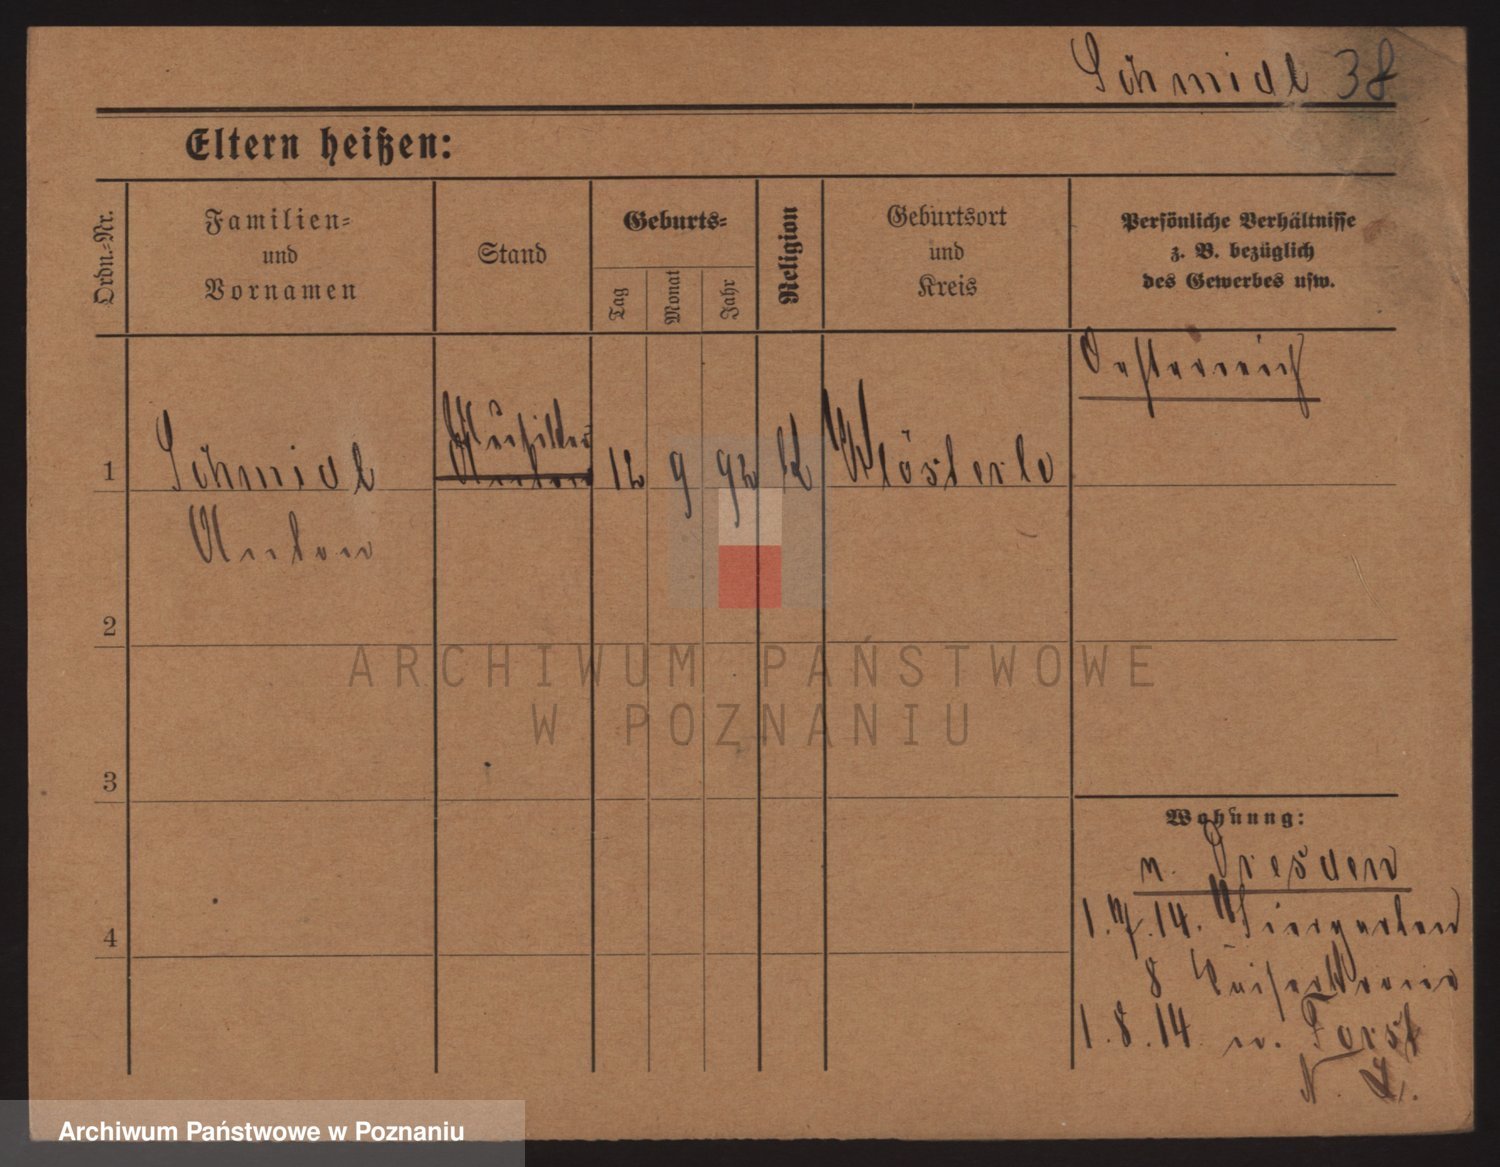 Schmidl 38
Eltern heißen:
Ordn.-Nr.
Familien-
und
Vornamen
Stand
Geburts-
Tag
Monat
Jahr
Religion
Geburtsort
und
Kreis
Persönliche Verhältnisse
z. B. bezüglich
des Gewerbes usw.
Oesterreich
1
Schmidl
Musiker
12
9
92
K
Klösterle
Anton
2
3
4
Wohnung:
n. Dresden
1.7.14. Tiergarten
8 Kaiserkrone
1.8.14 n. Forst
N. L.
ARCHIWUM PAŃSTWOWE
W POZNANIU
Archiwum Państwowe w Poznaniu